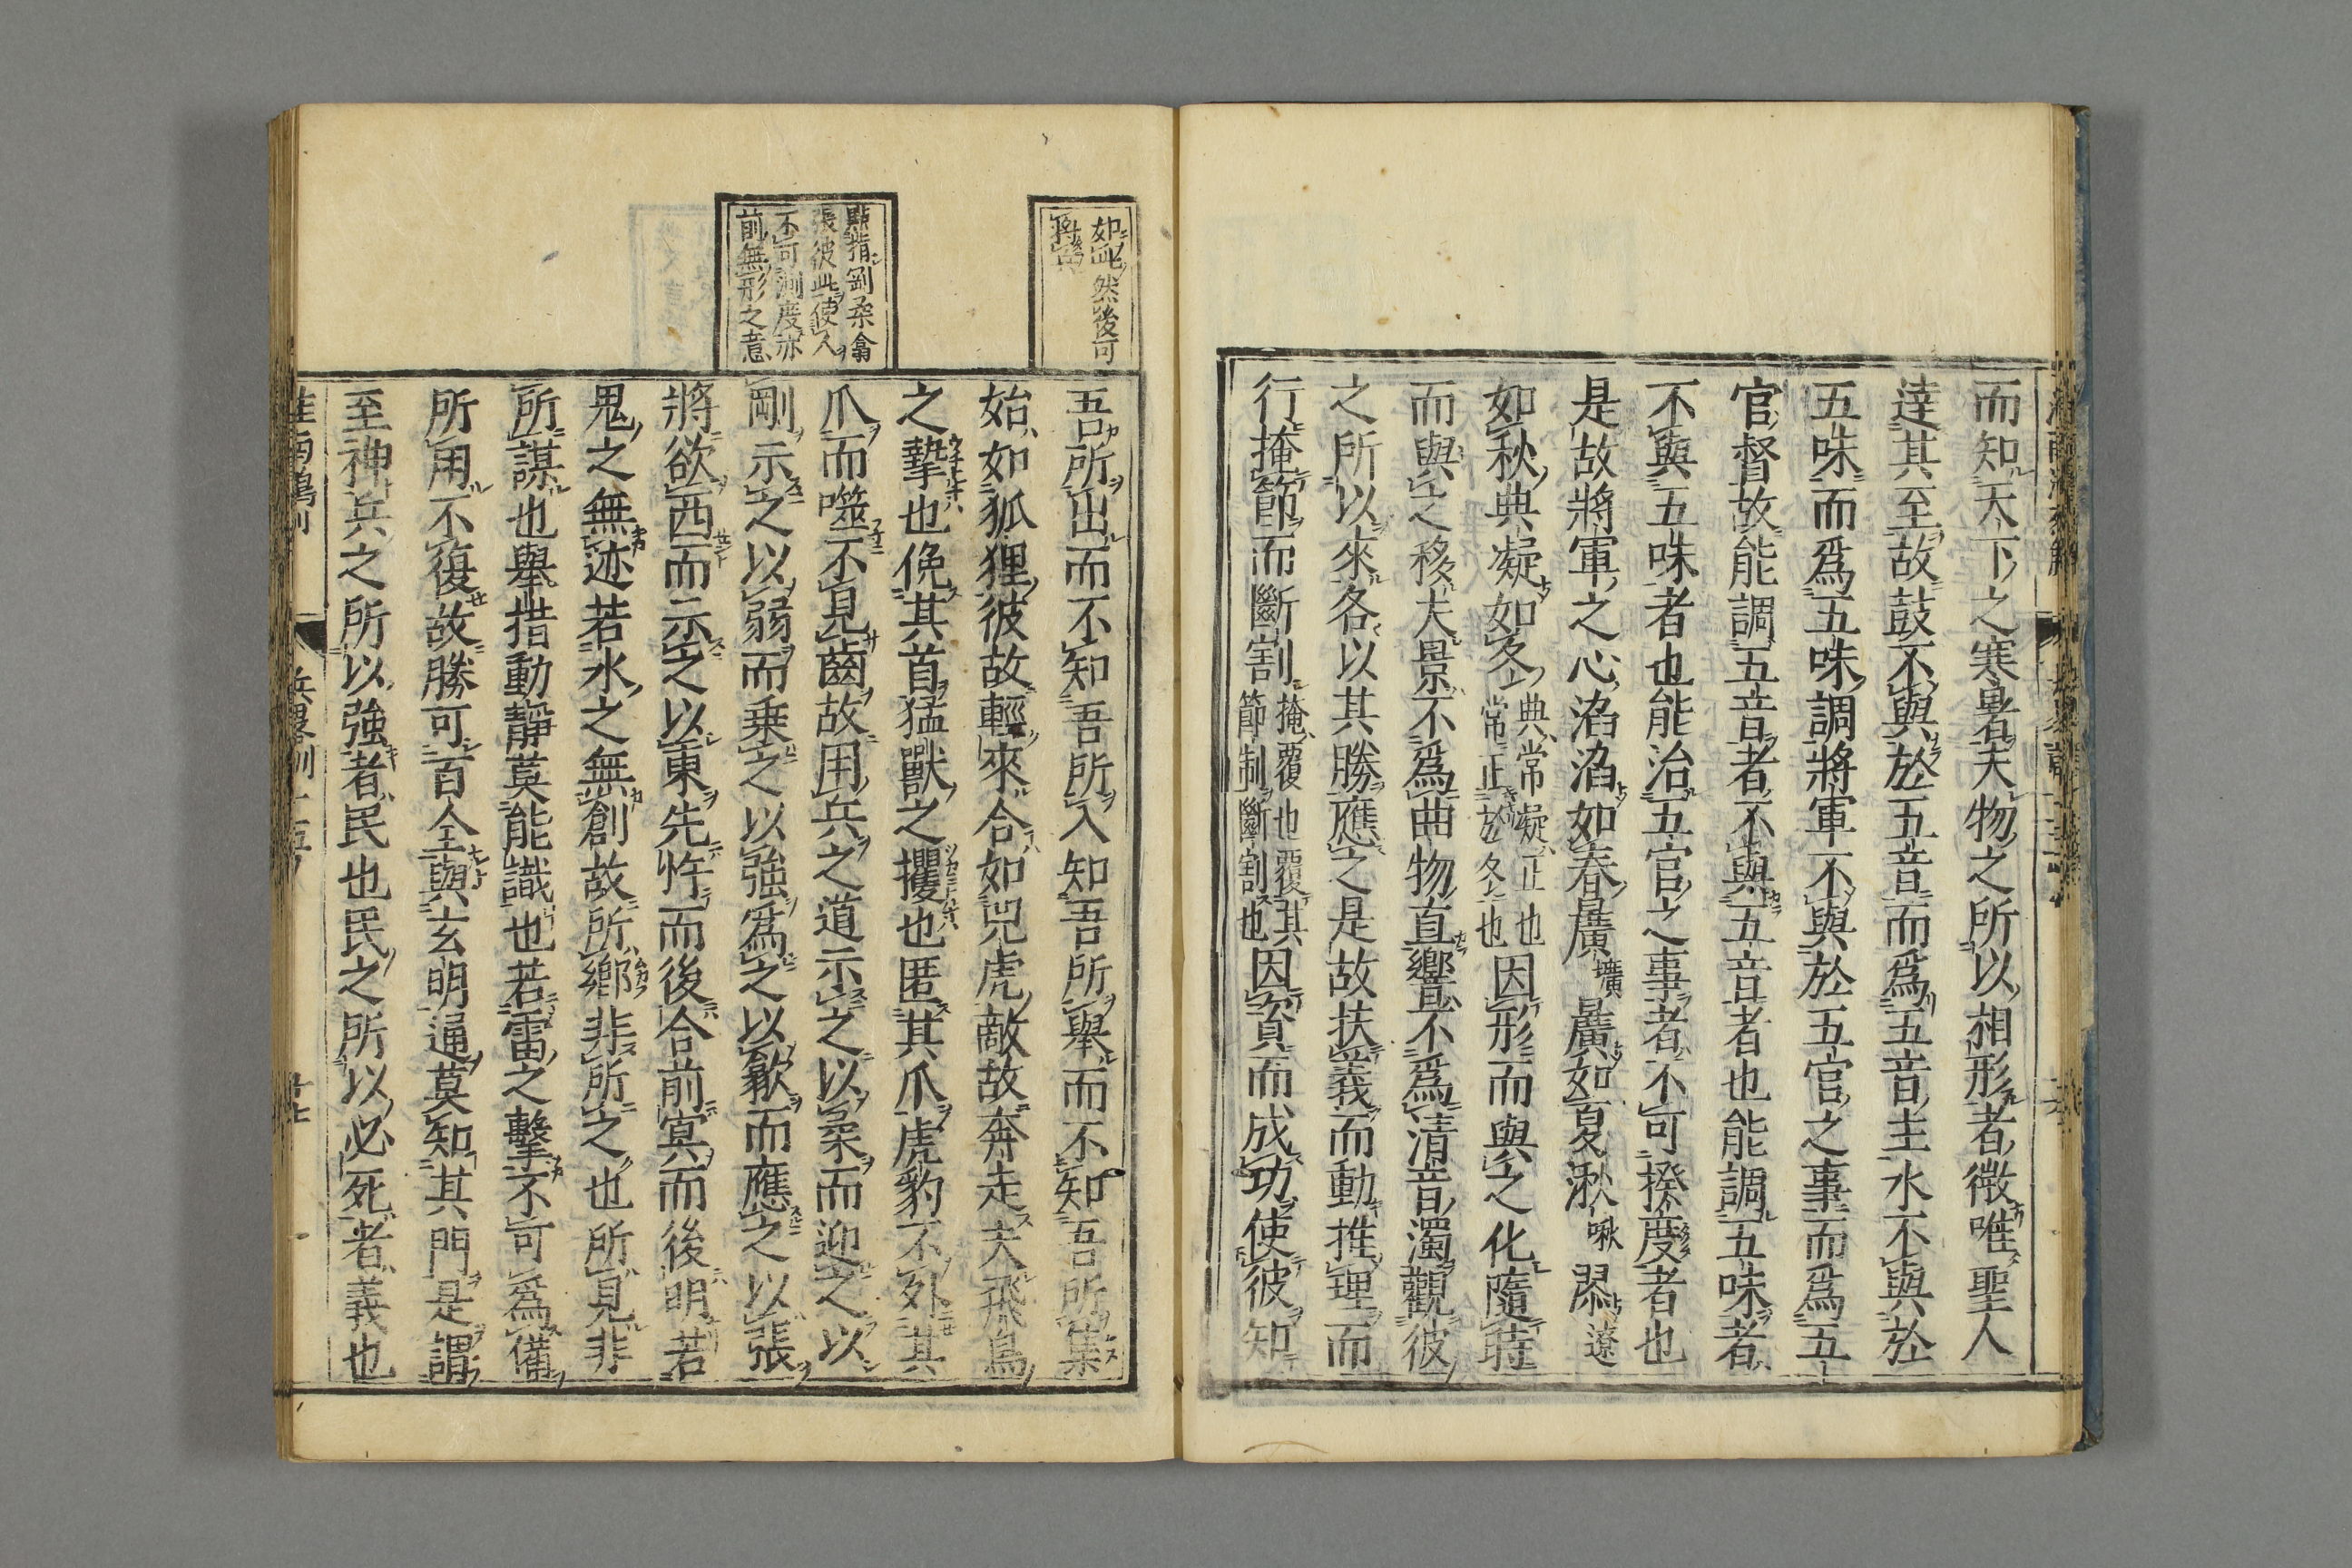 而知天下之寒暑夫物之所以相形者微唯聖人
達其至故鼓不與於五音而爲五音主水不與於
五味而爲五味調將軍不與於五官之事而爲五
官督故能調五音者不與五音者也能調五味者
不與五味者也能治五官之事者不可揆度者也
是故將軍之心滔滔如春曠壙曠如夏湫啾漻遼
如秋典凝如冬典常凝正也
常正於冬也因形而與之化隨時
而與之移夫景不爲曲物直響不爲清音濁觀彼
之所以來各以其勝應之是故扶義而動推理而
行掩節而斷割掩覆也覆其
節制斷割也因資而成功使彼知
如此然後可
將兵
吾所出而不知吾所入知吾所舉而不知吾所集
始如狐狸彼故輕來合如兕虎敵故奔走夫飛鳥
之摯也俛其首猛獸之攫也匿其爪虎豹不外其
爪而噬不見齒故用兵之道示之以柔而迎之以
剛示之以弱而乗之以強爲之以歙而應之以張
將欲西而示之以東先忤而後合前冥而後明若
鬼之無迹若水之無創故所鄉非所之也所見非
所謀也舉措動靜莫能識也若雷之擊不可爲備
所用不復故勝可百全與玄明通莫知其門是謂
至神兵之所以強者民也民之所以必死者義也
點指剛柔翕
張彼此使人
不可測度亦
前無形之意